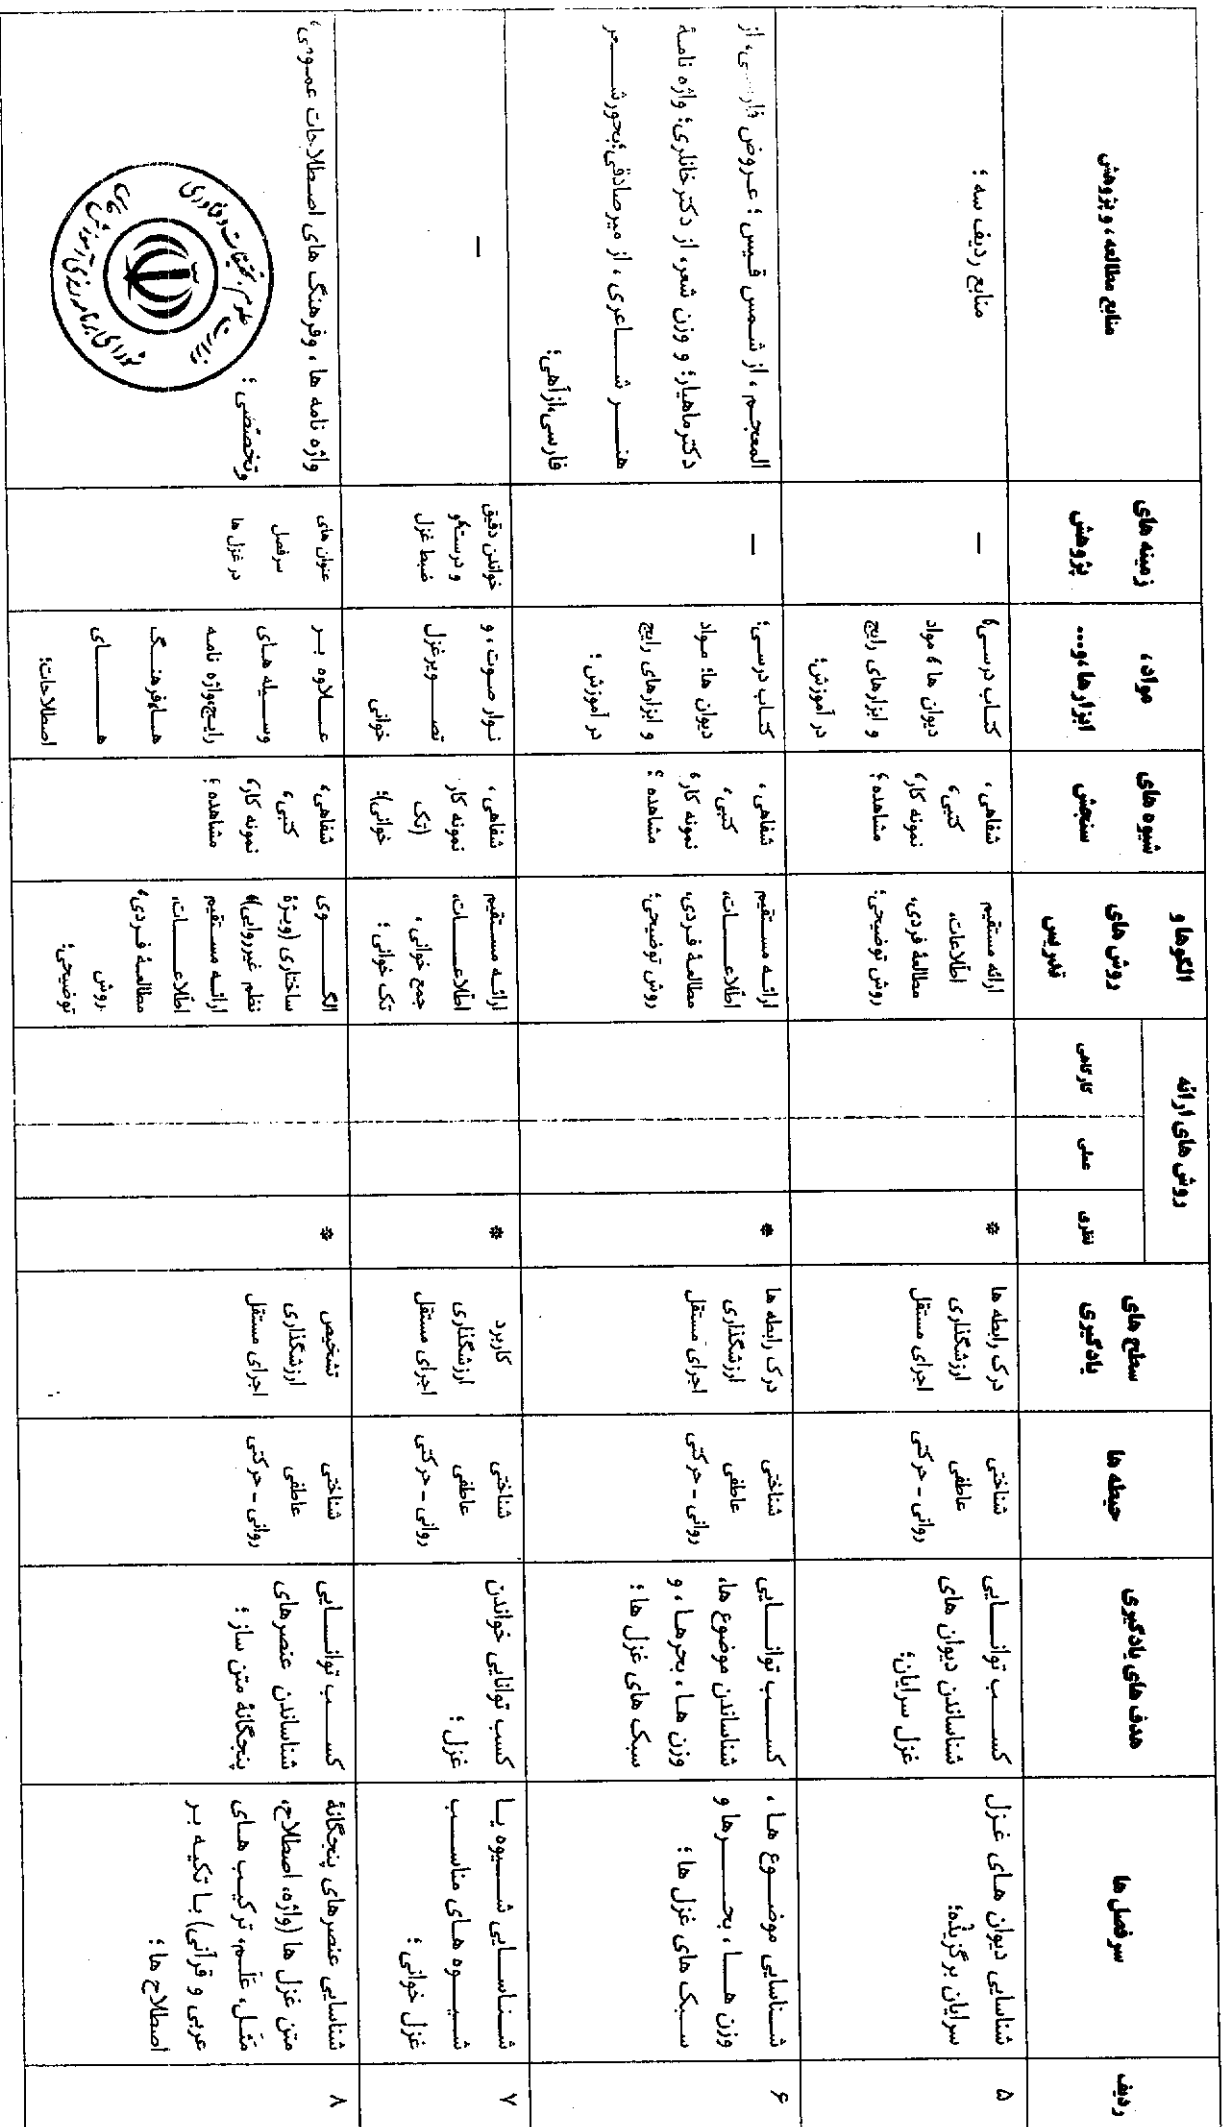 ردیف
سرفصل ها
هدف های یادگیری
حیطه ها
سطح های
یادگیری
روش های ارائه
نظری
عملی
کارگاهی
الگوها و
روش های
تدریس
شیوه های
سنجش
مواد،
ابزارها،و...
زمینه های
پژوهش
منابع مطالعه، و پژوهش
۵
شناسایی دیوان های غزل
سرایان برگزیده؛
کسب توانایی
شناساندن دیوان های
غزل سرایان؛
شناختی
عاطفی
روانی - حرکتی
درک رابطه ها
ارزشگذاری
اجرای مستقل
*
ارائه مستقیم
اطلاعات،
مطالعۀ فردی،
روش توضیحی؛
شفاهی،
کتبی،
نمونه کار،
مشاهده؛
کتاب درسی،
دیوان ها، مواد
و ابزارهای رایج
در آموزش؛
–
منابع ردیف سه؛
۶
شناسایی موضوع ها،
وزن ها، بحرها و
سبک های غزل ها؛
کسب توانایی
شناساندن موضوع ها،
وزن ها، بحرها، و
سبک های غزل ها؛
شناختی
عاطفی
روانی - حرکتی
درک رابطه ها
ارزشگذاری
اجرای مستقل
*
ارائه مستقیم
اطلاعات،
مطالعۀ فردی،
روش توضیحی؛
شفاهی،
کتبی،
نمونه کار،
مشاهده؛
کتاب درسی؛
دیوان ها؛ مواد
و ابزارهای رایج
در آموزش؛
–
المعجم، از شمس قیس؛ عروض فارسی، از
دکترماهیار؛ و وزن شعر، از دکتر خانلری؛ واژه نامۀ
هنر شاعری، از میرصادقی؛بحورشعر
فارسی،ازآهی؛
۷
شناسایی شیوه یا
شیوه های مناسب
غزل خوانی؛
کسب توانایی خواندن
غزل؛
شناختی
عاطفی
روانی - حرکتی
کاربرد
ارزشگذاری
اجرای مستقل
*
ارائه مستقیم
اطلاعات،
جمع خوانی،
تک خوانی؛
شفاهی،
نمونه کار
(تک
خوانی)؛
نوار صوت، و
تصویرغزل
خوانی
خواندن دقیق
و درست؛و
ضبط غزل
–
۸
شناسایی عنصرهای پنجگانۀ
متن غزل ها (واژه، اصطلاح،
مثل، علم، ترکیب های
عربی و قرآنی) با تکیه بر
اصطلاح ها؛
کسب توانایی
شناساندن عنصرهای
پنجگانۀ متن ساز؛
شناختی
عاطفی
روانی - حرکتی
تشخیص
ارزشگذاری
اجرای مستقل
*
الگوی
ساختاری (ویژۀ
نظم غیرروایی)؛
ارائه مستقیم
اطلاعات،
مطالعۀ فردی،
روش
توضیحی؛
شفاهی،
کتبی،
نمونه کار،
مشاهده؛
علاوه بر
وسیله های
رایج،واژه نامه
ها،فرهنگ
های
اصطلاحات؛
عنوان های
سرفصل
در غزل ها
واژه نامه ها، وفرهنگ های اصطلاحات عمومی،
وتخصصی؛
وزارت علوم، تحقیقات و فناوری
شورای برنامه ریزی آموزش عالی